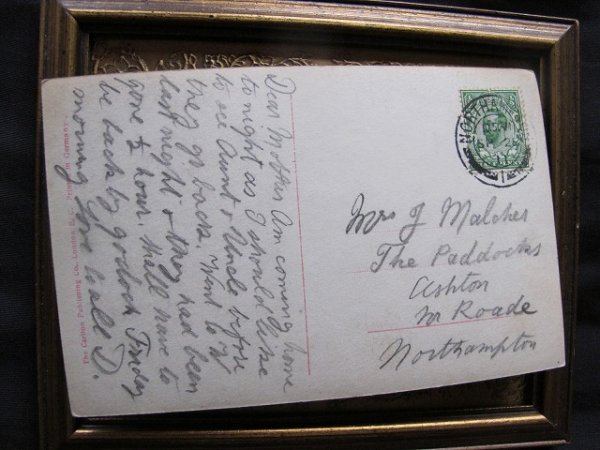 Dear Mother Am coming home
to night as I should like
to see Aunt & Uncle before
they go back. Went to
last night & they had been
gone ½ hour. Shall have to
be back by 9 oclock Friday
morning love to all D.
The Carlton Publishing Co. London E.C. Printed in Germany
NORTHAM
Mrs J Malcher
The Paddocks
Ashton
nr Roade
Northampton